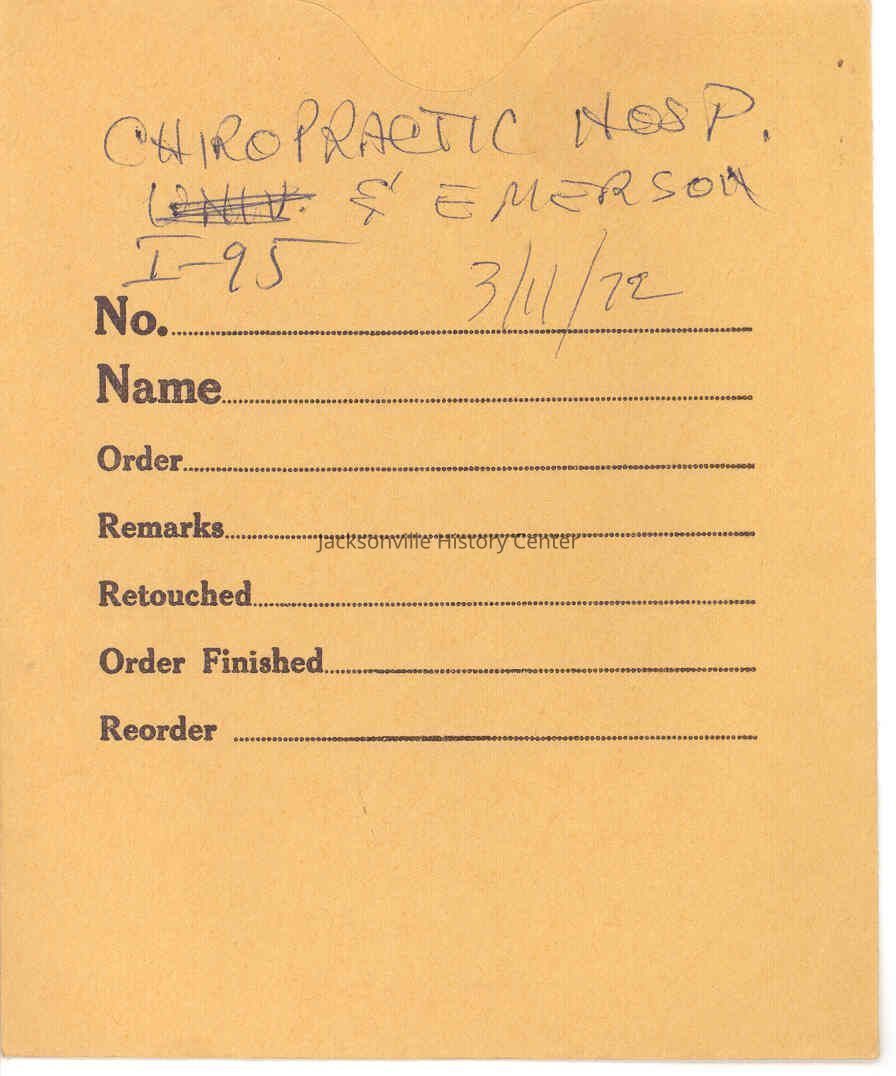 CHIROPRACTIC HOSP.
UNIV. & EMERSON
I-95
3/11/72
No.
Name
Order
Remarks
Jacksonville History Center
Retouched
Order Finished
Reorder